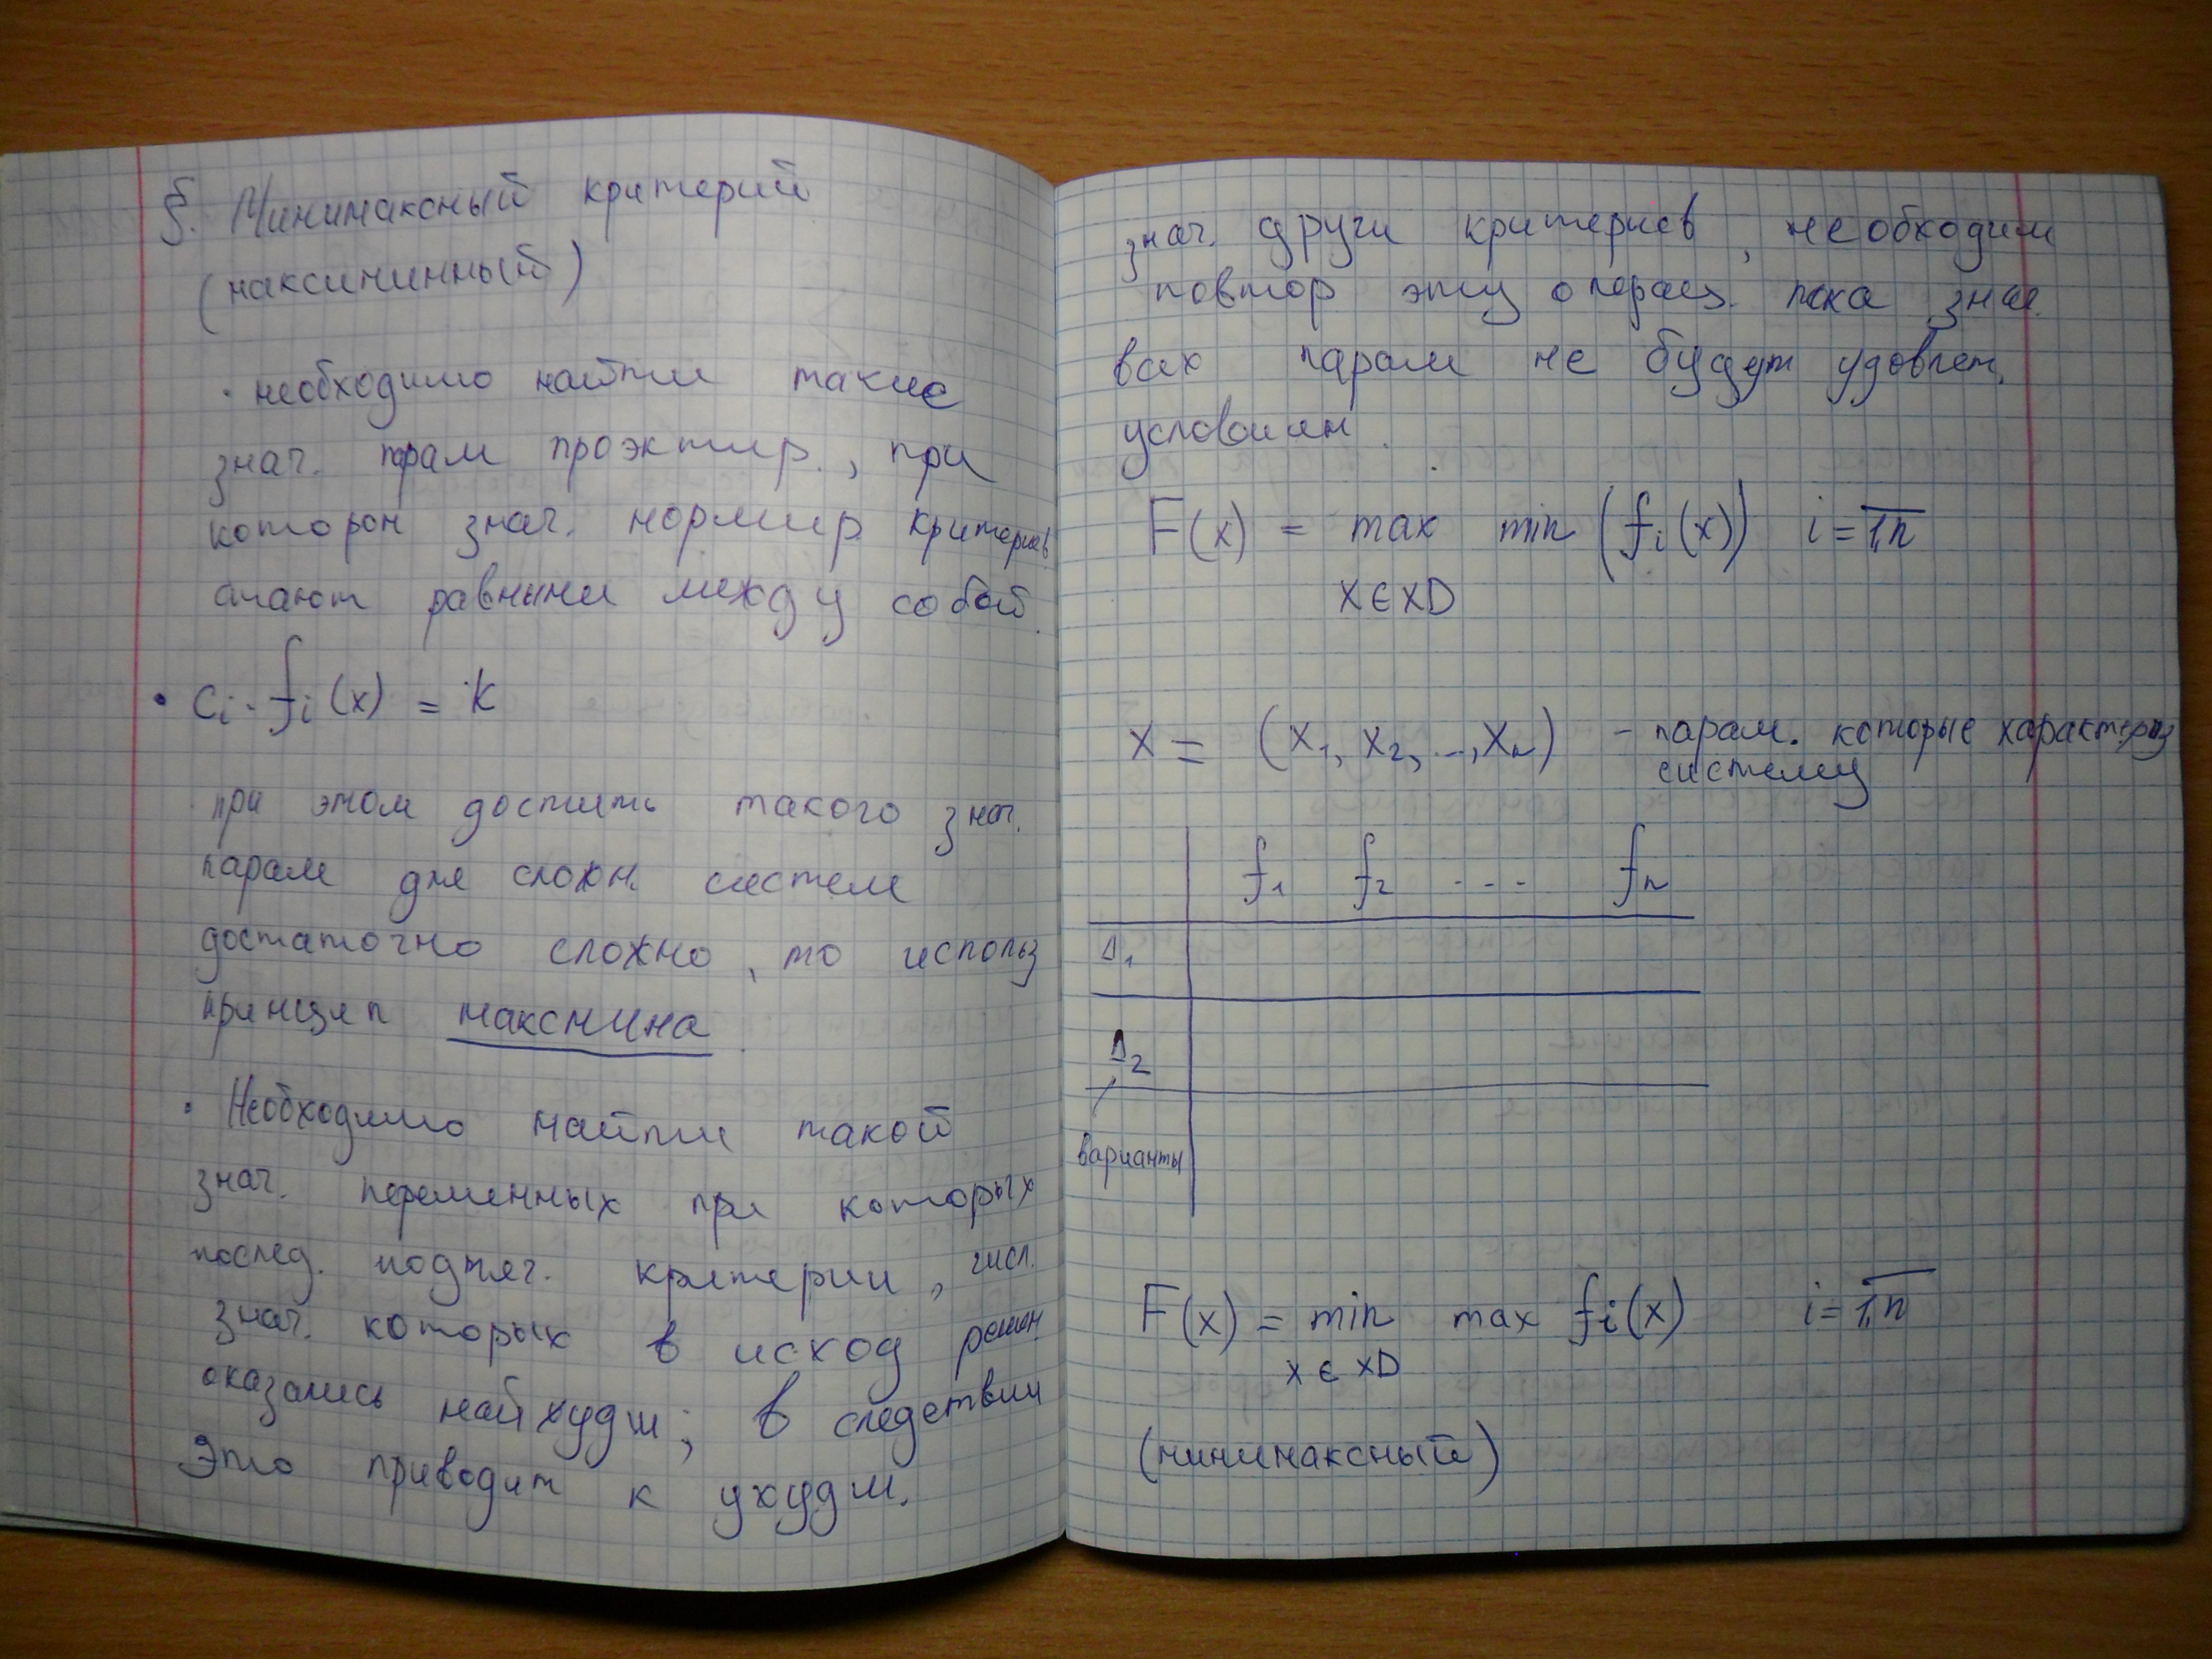 §. Минимаксный критерий
(максиминный)
· необходимо найти такие
знач. парам проэктир., при
котором знач. нормир. критериев
стают равными между собой.
• Ci · fi (x) = k
при этом достить такого знач.
парам для сложн. систем
достаточно сложно, то использ
принцип максмина.
· Необходимо найти такой
знач. переменных при которых
послед. подтяг. критерии, числ.
знач. которых в исход решен
оказались найхудш; в следствии
Это приводит к ухудш.
знач. други критериев, необходим
повтор эту операц. пока знач.
всех парам не будут удовлет.
условиям.
F(x) = max min (fi(x)) i = 1,n
x ∈ xD
x = (x1, x2, .., xn) – парам. которые характериз
систему
f1 f2 --- fn
Δ1
Δ2
варианты
F(x) = min max fi(x) i = 1,n
x ∈ xD
(минимаксный)